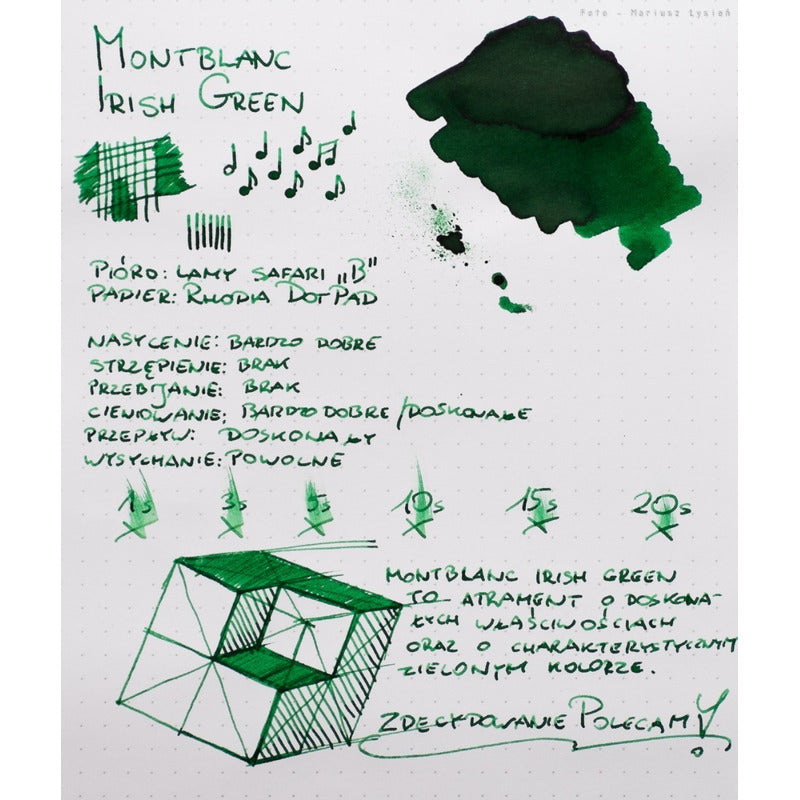 Foto - Mariusz Łysień
MONTBLANC
IRISH GREEN
PIÓRO: LAMY SAFARI „B"
PAPIER: RHODIA DOTPAD
NASYCENIE: BARDZO DOBRE
STRZĘPIENIE: BRAK
PRZEBIJANIE: BRAK
CIENIOWANIE: BARDZO DOBRE/DOSKONAŁE
PRZEPŁYW: DOSKONAŁY
WYSYCHANIE: POWOLNE
1s 3s 5s 10s 15s 20s
MONTBLANC IRISH GREEN
TO ATRAMENT O DOSKONA-
ŁYCH WŁAŚCIWOŚCIACH
ORAZ O CHARAKTERYSTYCZNYM
ZIELONYM KOLORZE.
ZDECYDOWANIE POLECAM!